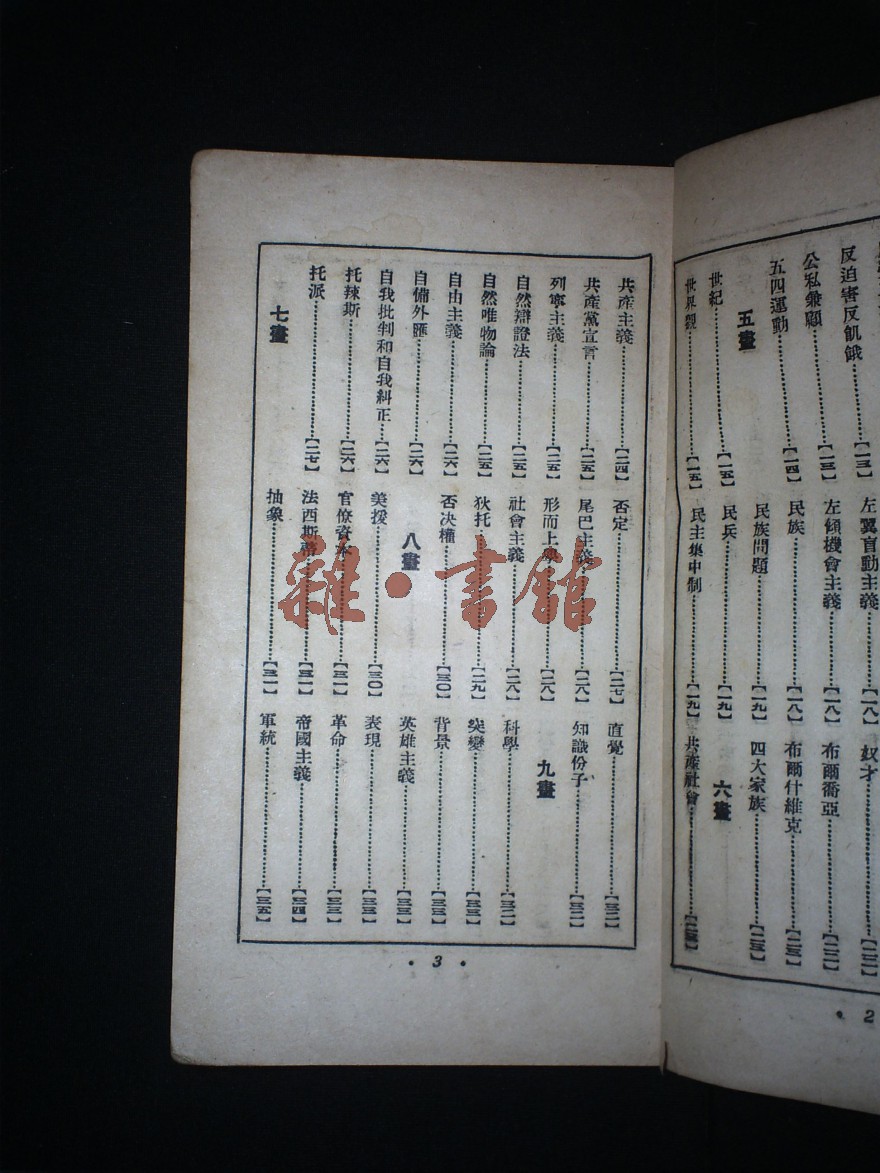 反迫害反飢餓【一三】
公私兼顧【一三】
五四運動【一四】
五畫
世紀【一五】
世界觀【一五】
左翼盲動主義【一八】
左傾機會主義【一八】
民族【一八】
民族問題【一九】
民兵【一九】
民主集中制【一九】
奴才
布爾喬亞
布爾什維克
四大家族
六畫
共產社會
• 2
共產主義【二四】
共產黨宣言【二五】
列寧主義【二五】
自然辯證法【二五】
自然唯物論【二五】
自由主義【二六】
自備外匯【二六】
自我批判和自我糾正【二六】
托辣斯【二六】
托派【二七】
七畫
否定【二七】
尾巴主義【二八】
形而上學【二八】
社會主義【二八】
狄托【二九】
否決權【三〇】
八畫
美援【三〇】
官僚資本【三一】
法西斯【三一】
抽象【三一】
直覺【三二】
知識份子【三二】
九畫
科學【三二】
突變【三三】
背景【三三】
英雄主義【三三】
表現【三三】
革命【三三】
帝國主義【三四】
軍統【三五】
• 3 •
雜·書館